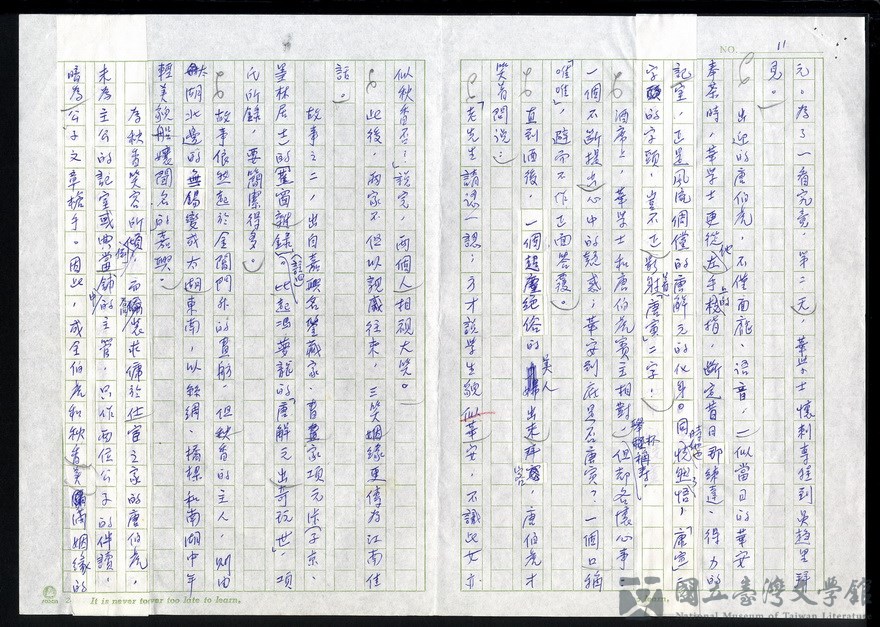 NO. 11
元。為了一看究竟，第二天，華學士懷刺專程到吳趨里拜
見。
出迎的唐伯虎，不僅面龐、語音，一似當日的華安
奉茶時，華學士更從他左手上的枝指，斷定昔日那練達、得力的
記室，正是風流倜儻的唐解元的化身。同時他也恍然悟，「康宣」二
字的字頭，豈不正影射著「唐寅」二字！
酒席上，華學士和唐伯虎賓主相對，舉杯稱壽，但却各懷心事。
一個不斷提出心中的疑惑；華安到底是否唐寅？一個口稱
「唯唯」，避而不作正面答覆。
直到酒後，一個超塵絕俗的美人出來拜客，唐伯虎才
笑着問說：
「老先生請認一認；方才說學生貌似華安，不識此女亦
似秋香否？」說完，兩個人相視大笑。
此後，兩家不但以親戚往來，三笑姻緣更傳為江南佳
話。
故事之二，出自嘉興名鑒藏家、書畫家項元汴（子京、
墨林居士）的「蕉窗雜錄」。（註四）比起馮夢龍的「唐解元出奇玩世」，項
氏所錄，要簡潔得多。
故事依然起於金閶門外的畫舫，但秋香的主人，則由
太湖北邊的無錫變成太湖東南，以絲綢、橘樣和南湖中年
輕美貌船孃聞名的嘉興。
為秋香笑容所傾倒，而喬裝求傭於仕宦之家的唐伯虎，
未為主公的記室或典當鋪中的主管，只作兩位公子的伴讀，
暗為公子文章槍手。因此，成全伯虎和秋香美滿姻緣的
It is never too late to learn.
國立臺灣文學館
National Museum of Taiwan Literature